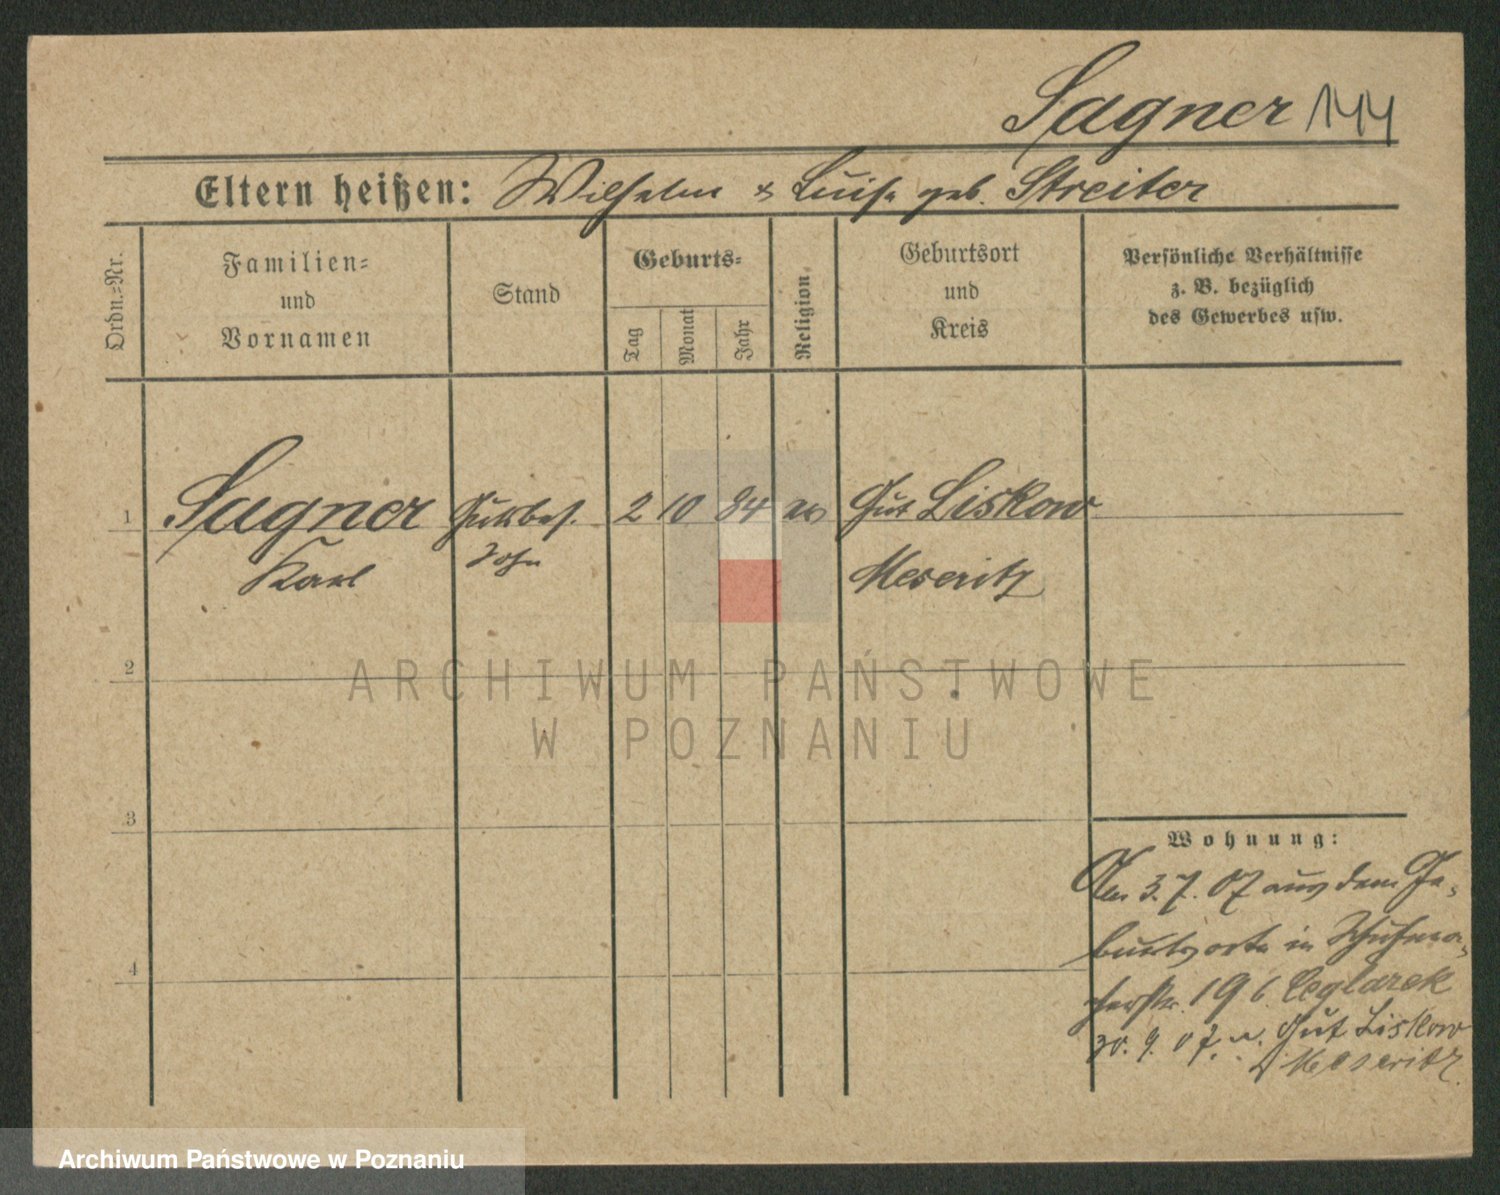 Sagner 144
Eltern heißen: Wilhelm & Luise geb. Streiter
Ordn.=Nr.
Familien=
und
Vornamen
Stand
Geburts=
Tag
Monat
Jahr
Religion.
Geburtsort
und
Kreis
Persönliche Verhältnisse
z. B. bezüglich
des Gewerbes usw.
1 Sagner Gutsbes. 2 10 84 ev Gut Liskow
Karl Sohn Meseritz
2
3
4
Wohnung:
Am 3.7.07 aus dem Ge-
burtsorte in Schuhma-
cherstr. 19 b. Ceglarek
30. 9. 07. n. Gut Liskow
Meseritz.
ARCHIWUM PAŃSTWOWE
W POZNANIU
Archiwum Państwowe w Poznaniu